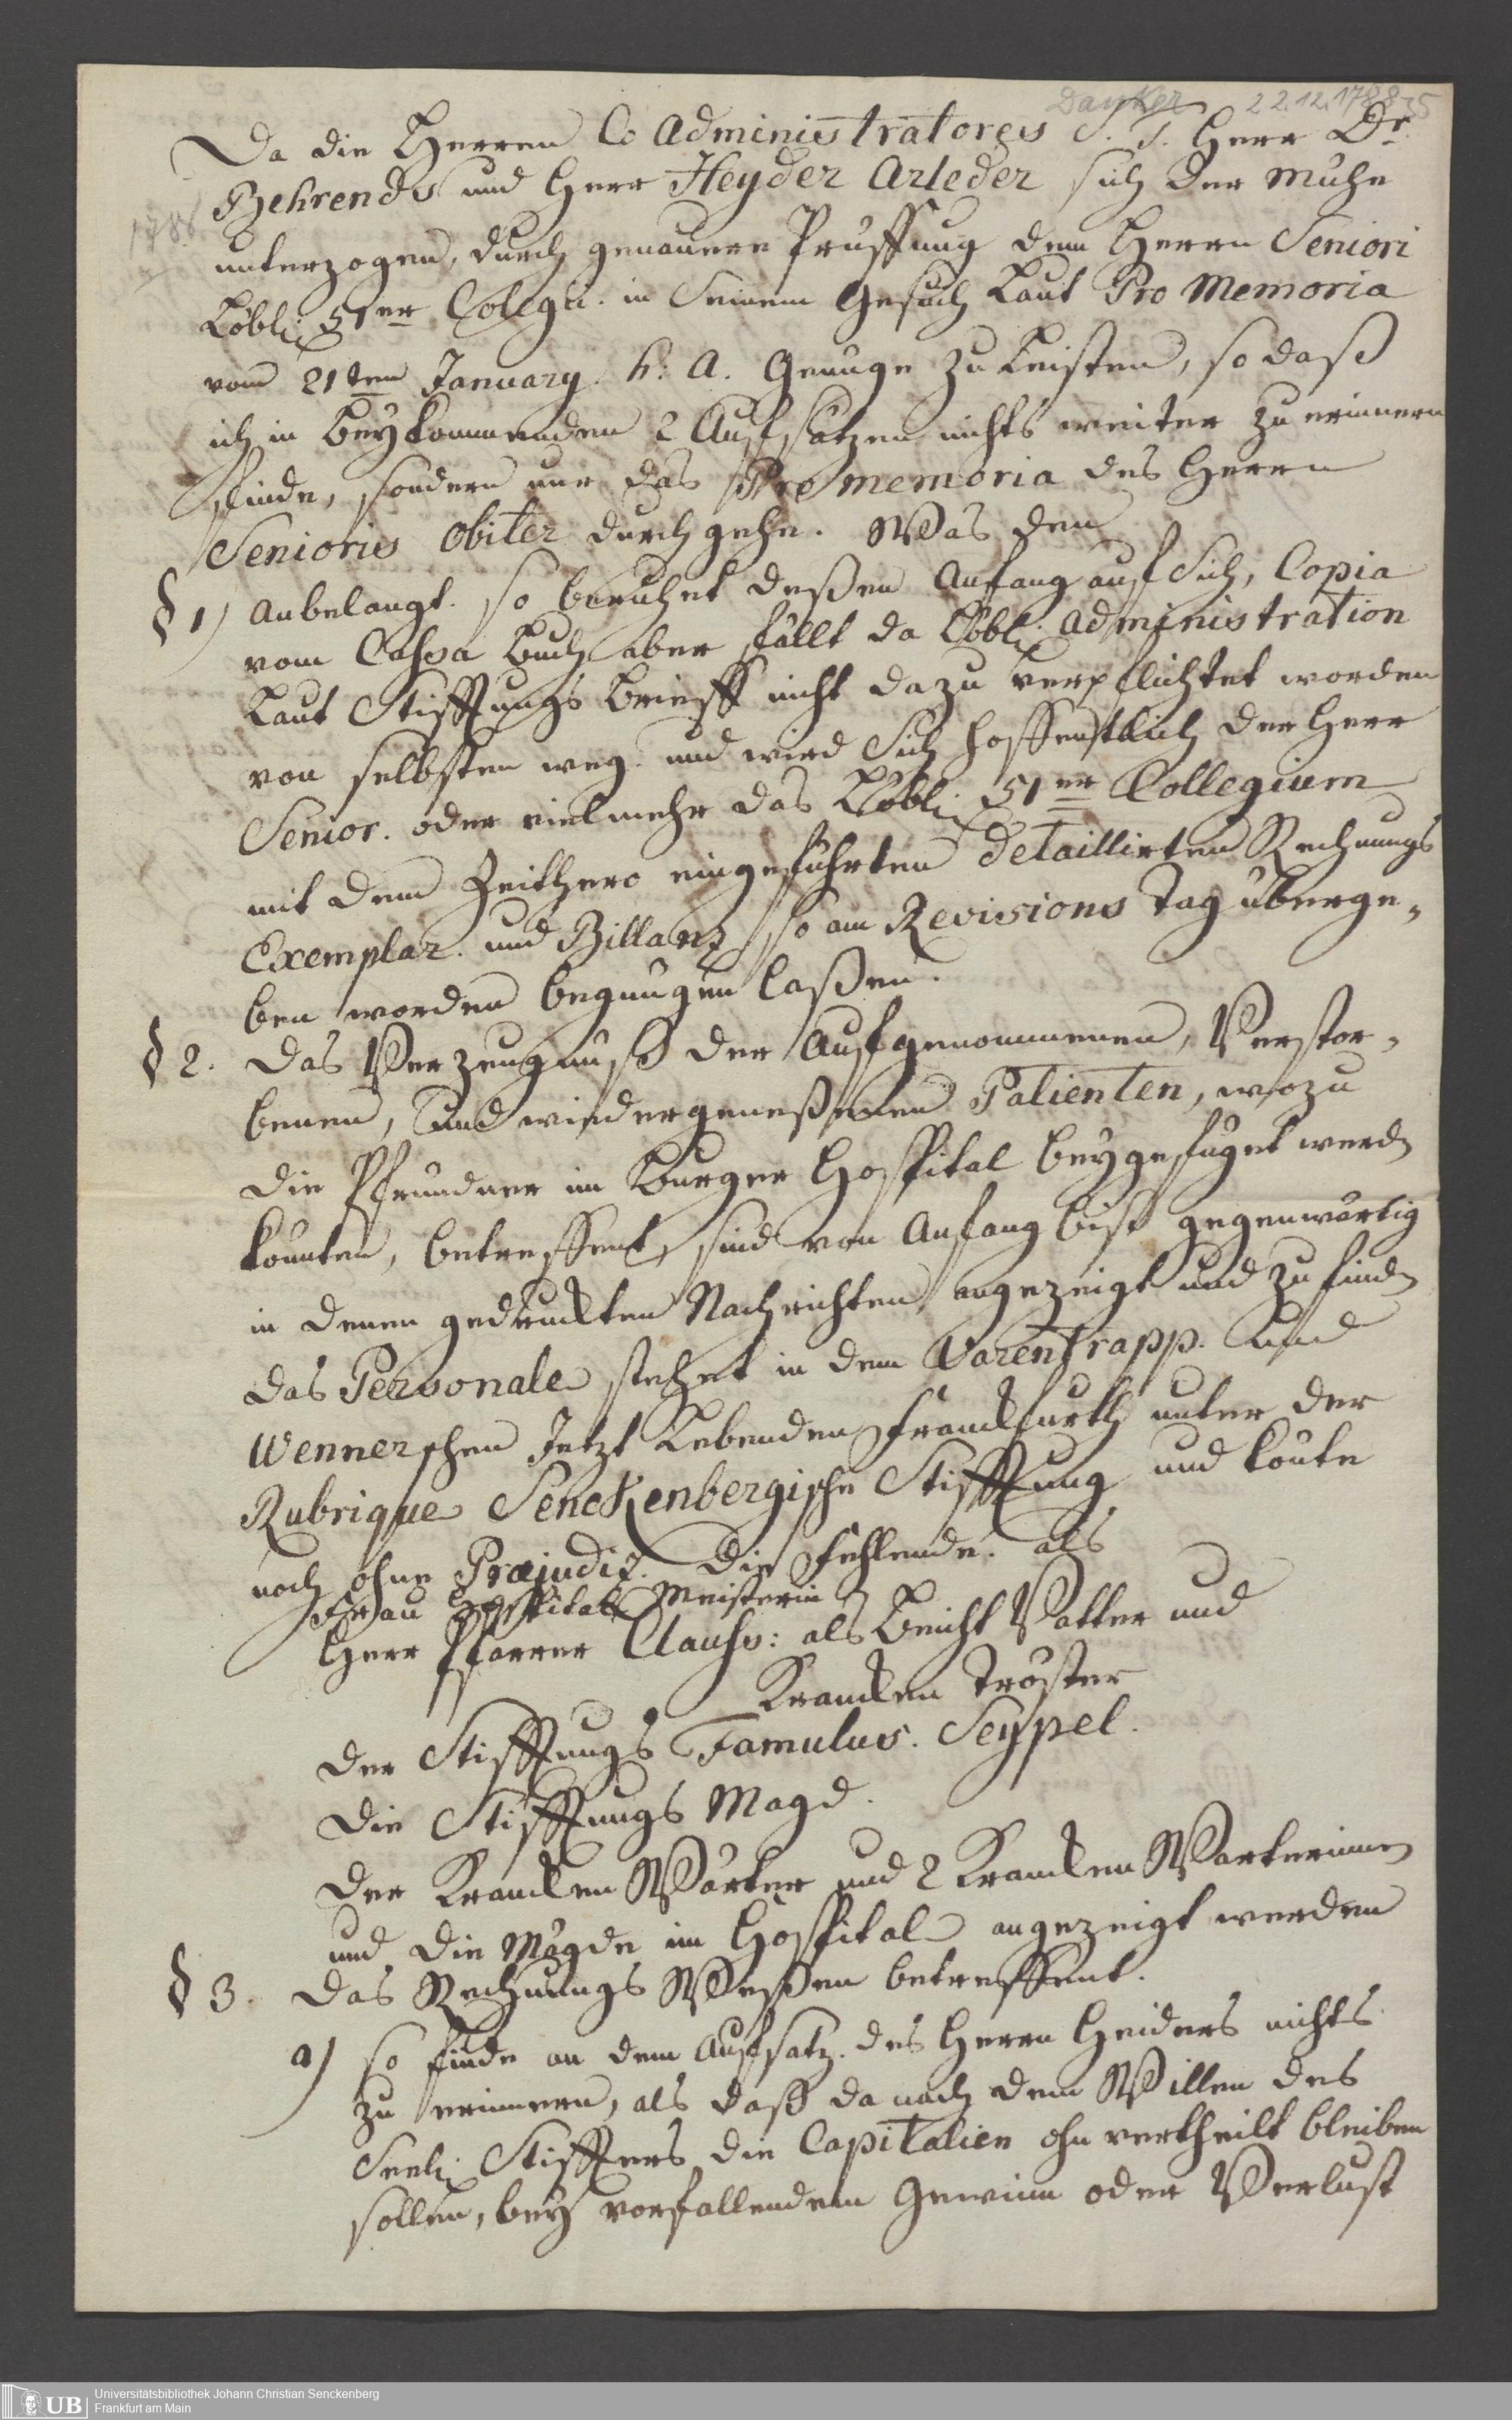 Danker 22.12.1788 35
Da die Herren Co Administratores S. T. Herr Dr.
Behrends und Herr Heyder Arleder sich der Mühe
1788
unterzogen, durch genauere Prüffung dem Herrn Seniori
Löbl: 51er Colegii. in Seinem Gesuch Laut Pro Memoria
vom 21ten January. h: A. Genüge zu Leisten, so daß
ich in beykommenden 2 Aufsätzen nichts weiter zu erinnern
finde, sondern nur das Pro Memoria des Herrn
Senioris obiter durch gehe. Was den
§ 1) Anbelangt. so beruhet deßen Anfang auf Sich, Copia
vom Cassa Buch aber fällt da Löbl: Administration
Laut Stifftungs Brieff nicht dazu verpflichtet worden
von selbsten weg. und wird Sich hoffentlich der Herr
Senior. oder vielmehr das Löbl: 51er Collegium
mit dem Zeithero eingeführten detaillirten Rechnungs
Exemplar. und Billanz so am Revisions Tag überge-
ben worden begnügen laßen.
§ 2. Das Verzeugnuß der Aufgenommenen, Verstor-
benen, und wiedergeneßenen Patienten, wozu
die Pfründner im Burger Hospital beygefüget werdn
könnten, betreffent, sind von Anfang biß gegenwärtig
in denen gedruckten Nachrichten, angezeigt und zu findn
das Personale stehet in dem Varentrapp. und
Wennerschen Jetzt Lebenden Franckfurth unter der
Rubrique Senckenbergische Stifftung und könte
noch ohne Præjudiz. Die Fehlende. als
Frau Hospital Meisterin
Herr Pfarrer Clauss: als Beicht Vatter und
Krancken Tröster
Der Stifftungs Famulus. Seypel.
Die Stifftungs Magd.
Der Krancken Wärter und 2 Krancken Wärterinnen
und die Mägde im Hospital angezeigt werden
§ 3. Das Rechnungs Weßen betreffent.
a) so finde an dem Aufsatz. des Herrn Heiders nichts
zu erinnern, als daß da nach dem Willen des
Seel: Stiffters die Capitalien ohn vertheilt bleiben
sollen, bey vorfallendem Gewinn oder Verlust
UB
Universitätsbibliothek Johann Christian Senckenberg
Frankfurt am Main